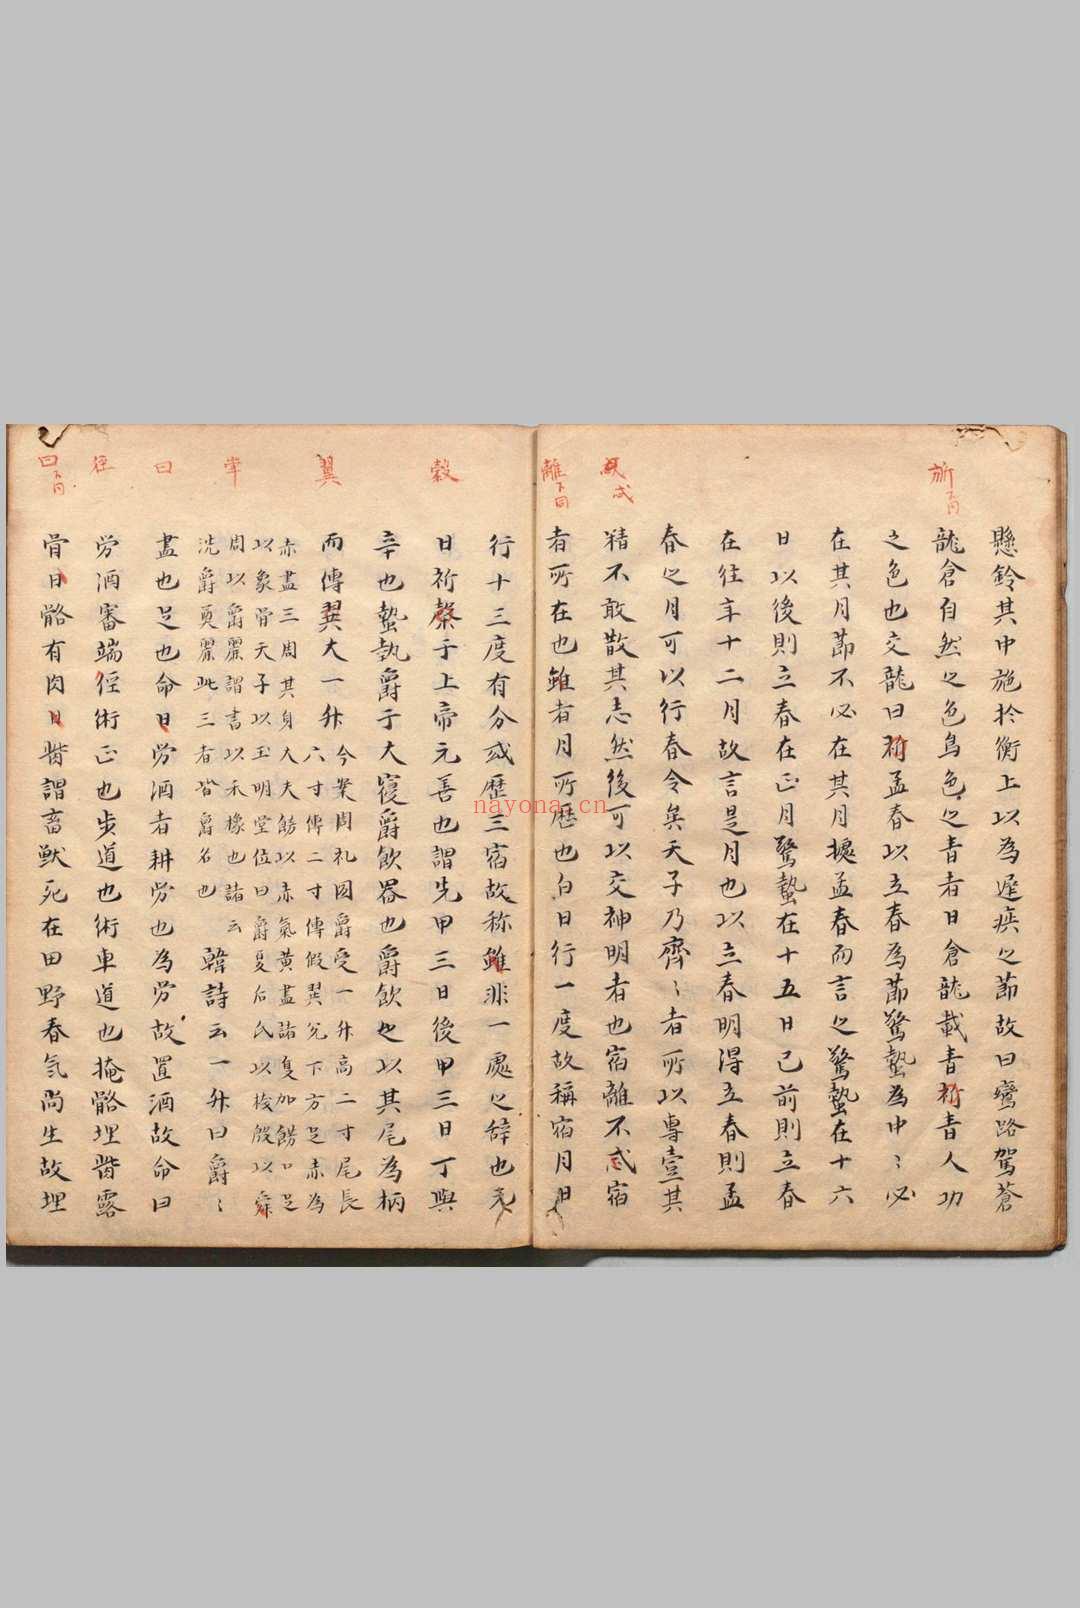 懸鈴其中施於衡上以為遅疾之節故曰鸞路駕蒼
龍倉自然之色鳥色之青者曰倉龍載青旂青人功
之色也交龍曰旂孟春以立春為節驚蟄為中〻必
在其月節不必在其月據孟春而言之驚蟄在十六
日以後則立春在正月驚蟄在十五日已前則立春
在往年十二月故言是月也以立春明得立春則孟
春之月可以行春令矣天子乃齊〻者所以專壹其
精不敢散其志然後可以交神明者也宿離不忒宿
者所在也雖者月所歷也白日行一度故稱宿月日
行十三度有分或歷三宿故称雖非一處之辞也元
日祈穀于上帝元善也謂先甲三日後甲三日丁與
辛也蟄執爵于大寢爵飲器也爵飲也以其尾為柄
而傳翼大一升
今案周礼図爵受一升高二寸尾長
六寸傳二寸傳假翼兌下方足赤為
赤盡三周其身大夫餝以赤氣黄盡諸夏加餝口足
以象骨天子以玉明堂位曰爵夏后氏以梭殷以斝
周以爵羅謂書以禾樣也諸云
洗爵奠羅此三者皆爵名也
韓詩云一升曰爵〻
盡也足也命曰労酒者耕労也為労故置酒故命曰
労酒審端徑術正也步道也術車道也掩骼埋胔露
骨曰骼有肉曰胔謂畜獣死在田野春氣尚生故埋
旂
下同
忒
離
下同
穀
翼
斝
曰
徑
曰
下同
nayona.cn